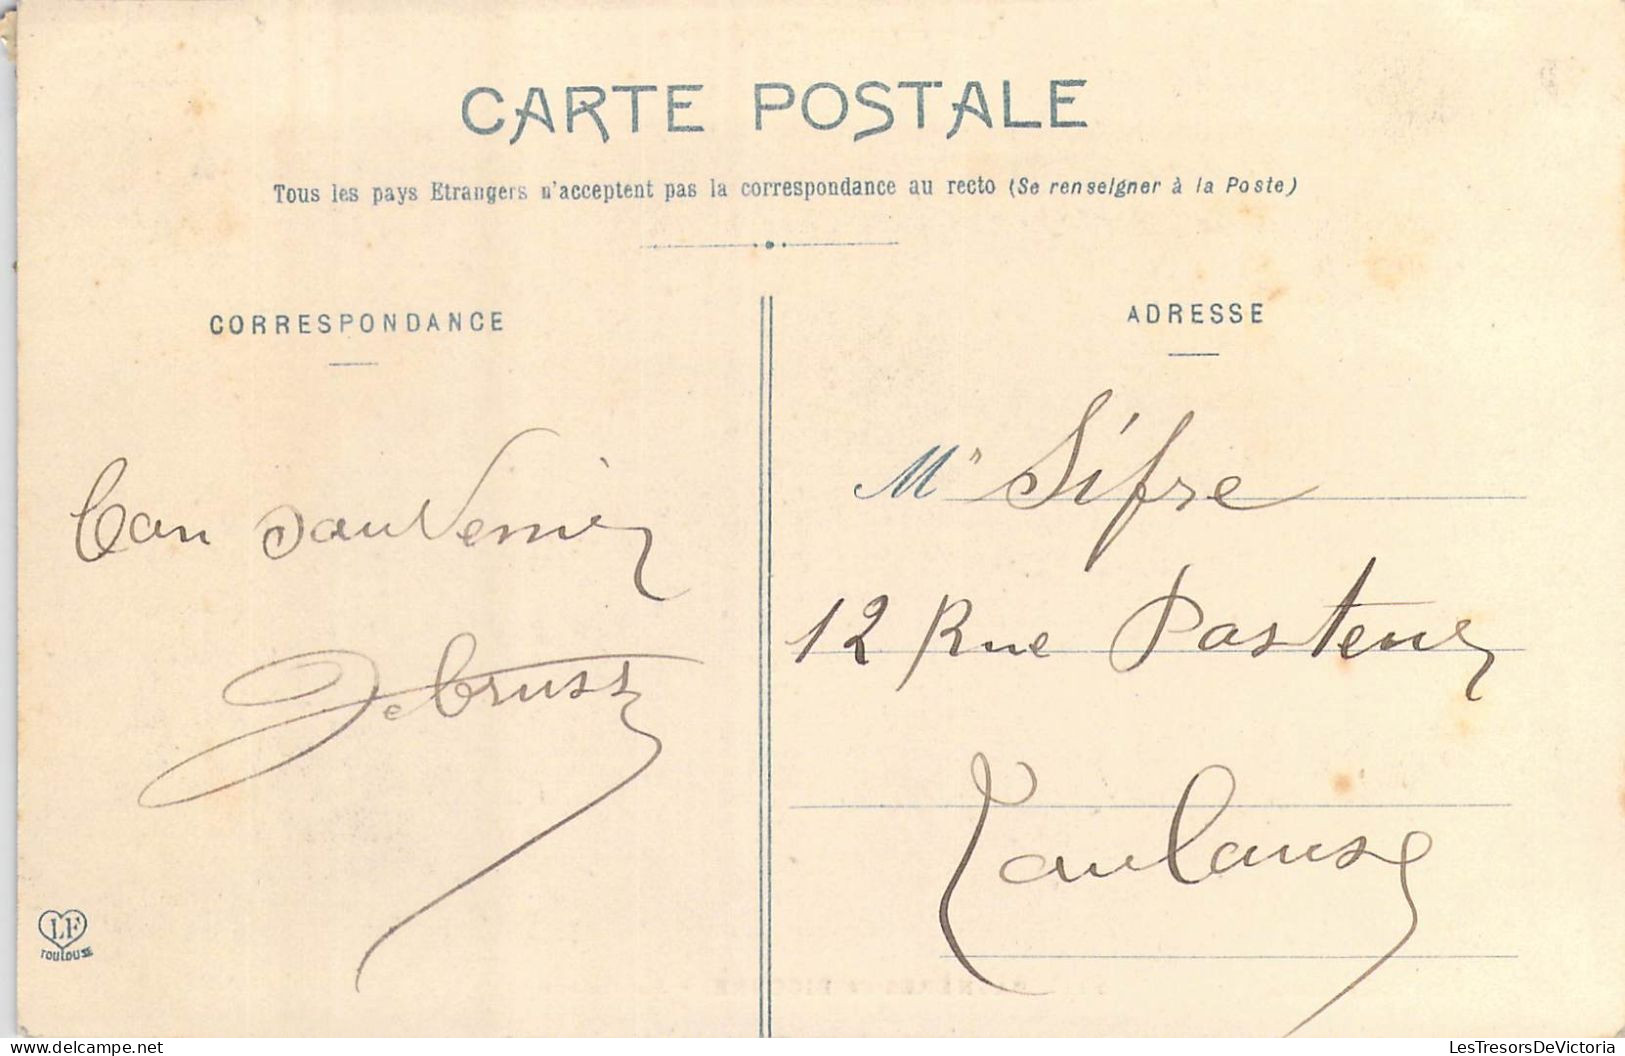 CARTE POSTALE
Tous les pays Etrangers n'acceptent pas la correspondance au recto (Se renseigner à la Poste)
CORRESPONDANCE
ADRESSE
Bon Souvenir
Mr Sifre
12 Rue Pasteur
Toulouse
LF
TOULOUSE
LesTresorsDeVictoria